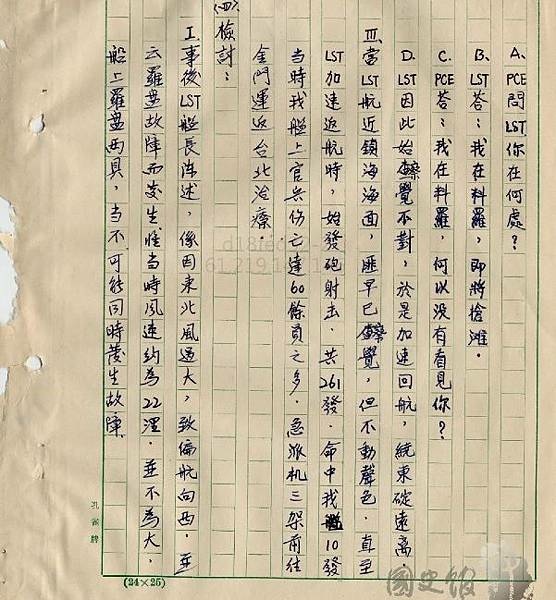 A. PCE問LST你在何處？
B. LST答：我在料羅，即將搶灘。
C. PCE答：我在料羅，何以沒有看見你？
D. LST因此始察覺不對，於是加速回航，繞東碇遠離。
Ⅲ. 當LST航近鎮海海面，匪早已察覺，但不動聲色，直至
LST加速返航時，始發砲射击，共261發，命中我艦10發
當時我艦上官兵伤亡達60餘員之多，急派机三架前往
金門運返台北治療
(四)檢討：
Ⅰ. 事後LST艦長陈述，係因東北風過大，致偏航向西，並
云羅盘故障而发生，惟當時風速約為22浬，並不為大，
船上羅盘両具，当不可能同時發生故障
孔雀牌
(24×25)
國史館